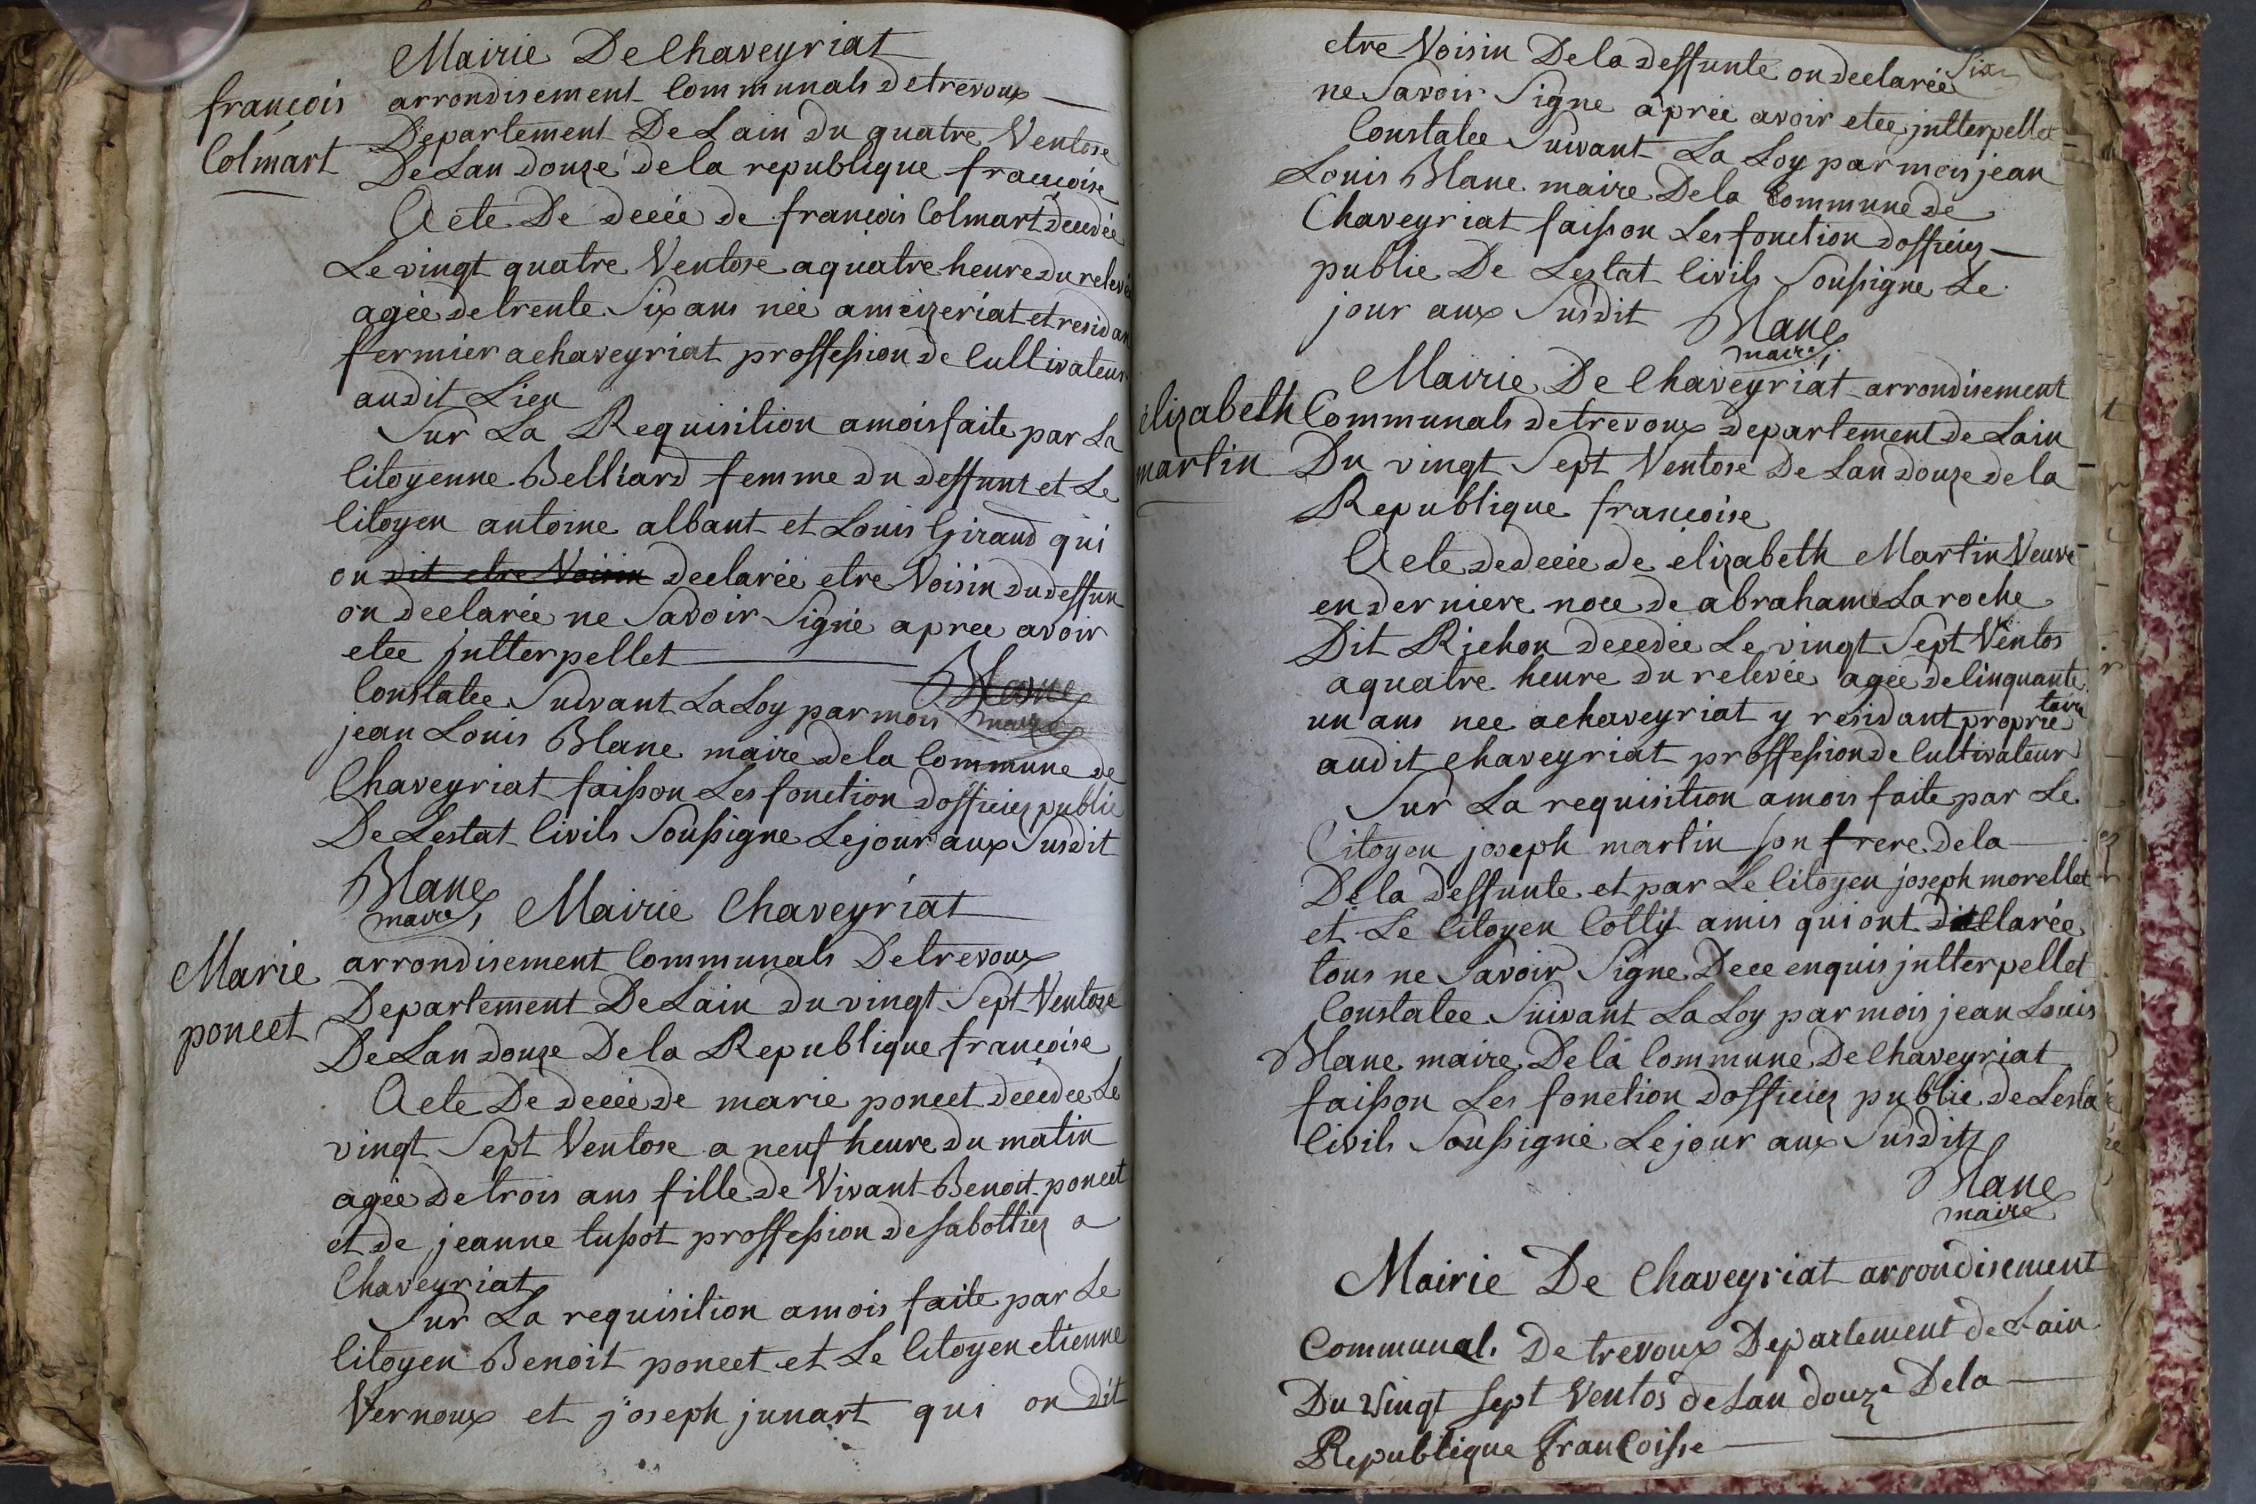 Mairie De Chaveyriat
françois
Colmart
arrondisement Communals detrevoux
Departement De Lain du quatre Ventose
De Lan douze de la republique françoise
Acte De deceé de françois Colmart decedée
Le vingt quatre Ventose a quatre heure du relevé
agée detrente Six ans née a meizeriat et residan
fermier a chaveyriat proffession de Cultivateur
audit Lieu
Sur La Requisition amois faite par La
Citoyenne Belliard femme du deffunt et Le
Citoyen antoine albant et Louis Giraud qui
on dit etre Voisin declarée etre Voisin du deffun
on declarée ne Savoir Signé apree avoir
etee jntterpellet
Blanc
maire
Constatee Suivant La Loy par mois
jean Louis Blanc maire dela Commune de
Chaveyriat faisson Les fonction dofficier public
De Lestat Civils Soussigne Lejour aux Susdit
Blanc
maire
Mairie Chaveyriat
Marie
poncet
arrondisement Communals Detrevoux
Departement De Lain du vingt Sept Ventose
De Lan douze De la Republique françoise
Acte De deceé de marie poncet decedee Le
vingt Sept Ventose a neuf heure du matin
agée De trois ans fille de Vivant Benoit poncet
et de jeanne tussot proffession de sabottier a
Chaveyriat
Sur La requisition amois faite par Le
Citoyen Benoit poncet et Le Citoyen etienne
Vernoux et joseph junart qui on dit
etre Voisin De la deffunte on declarée
ne Savoir Signe apree avoir etee jntterpellet
Constatee Suivant La Loy par mois jean
Louis Blanc maire De la Commune de
Chaveyriat faisson Les fonction dofficier
public De Lestat Civils Soussigne Le
jour aux Susdit
Blanc
maire
Mairie De Chaveyriat arrondisement
elizabeth
martin
Communals detrevoux departement de Lain
Du vingt Sept Ventose De Lan douze de la
Republique françoise
Acte de deceé de elizabeth Martin Veuve
en derniere noce de abrahame Laroche
Dit Richon decedée Le vingt Sept Ventos
a quatre heure du relevée agée de Cinquante
un ans nee a chaveyriat y residant proprietaire
audit chaveyriat proffession de Cultivateur
Sur La requisition amois faite par Le
Citoyen joseph martin son frere dela
De la deffunte et par Le Citoyen joseph morellet
et Le Citoyen Colly amis qui ont declarée
tous ne Savoir Signe Dece enquis jntterpellet
Constatee Suivant La Loy par mois jean Louis
Blanc maire De la Commune De Chaveyriat
faisson Les fonction dofficier public de Lesta
Civils Soussigné Lejour aux Susdit
Blanc
maire
Mairie De Chaveyriat arrondisement
Communal. De trevoux Departement de Lain
Du Vingt Sept Ventos de Lan douze Dela
Republique Francoisse